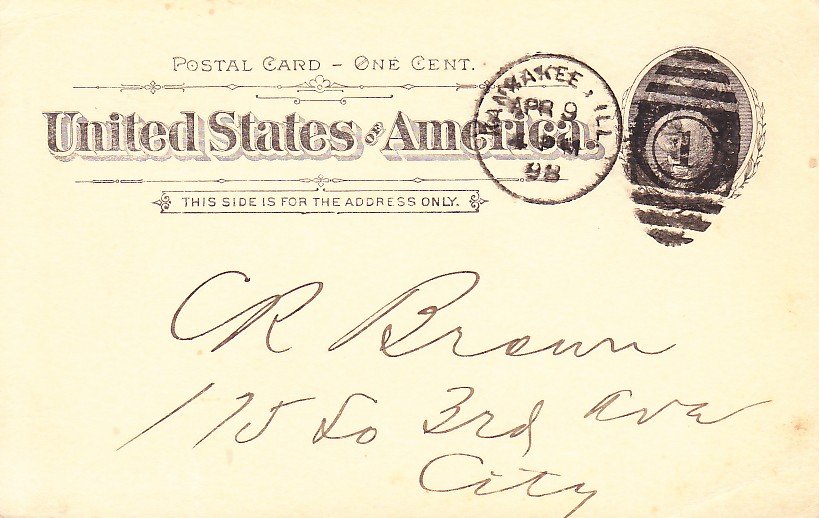 POSTAL CARD - ONE CENT.
United States OF America.
THIS SIDE IS FOR THE ADDRESS ONLY.
KANKAKEE, ILL.
APR 9
98
1
CR Brown
175 So 3rd Ave
City